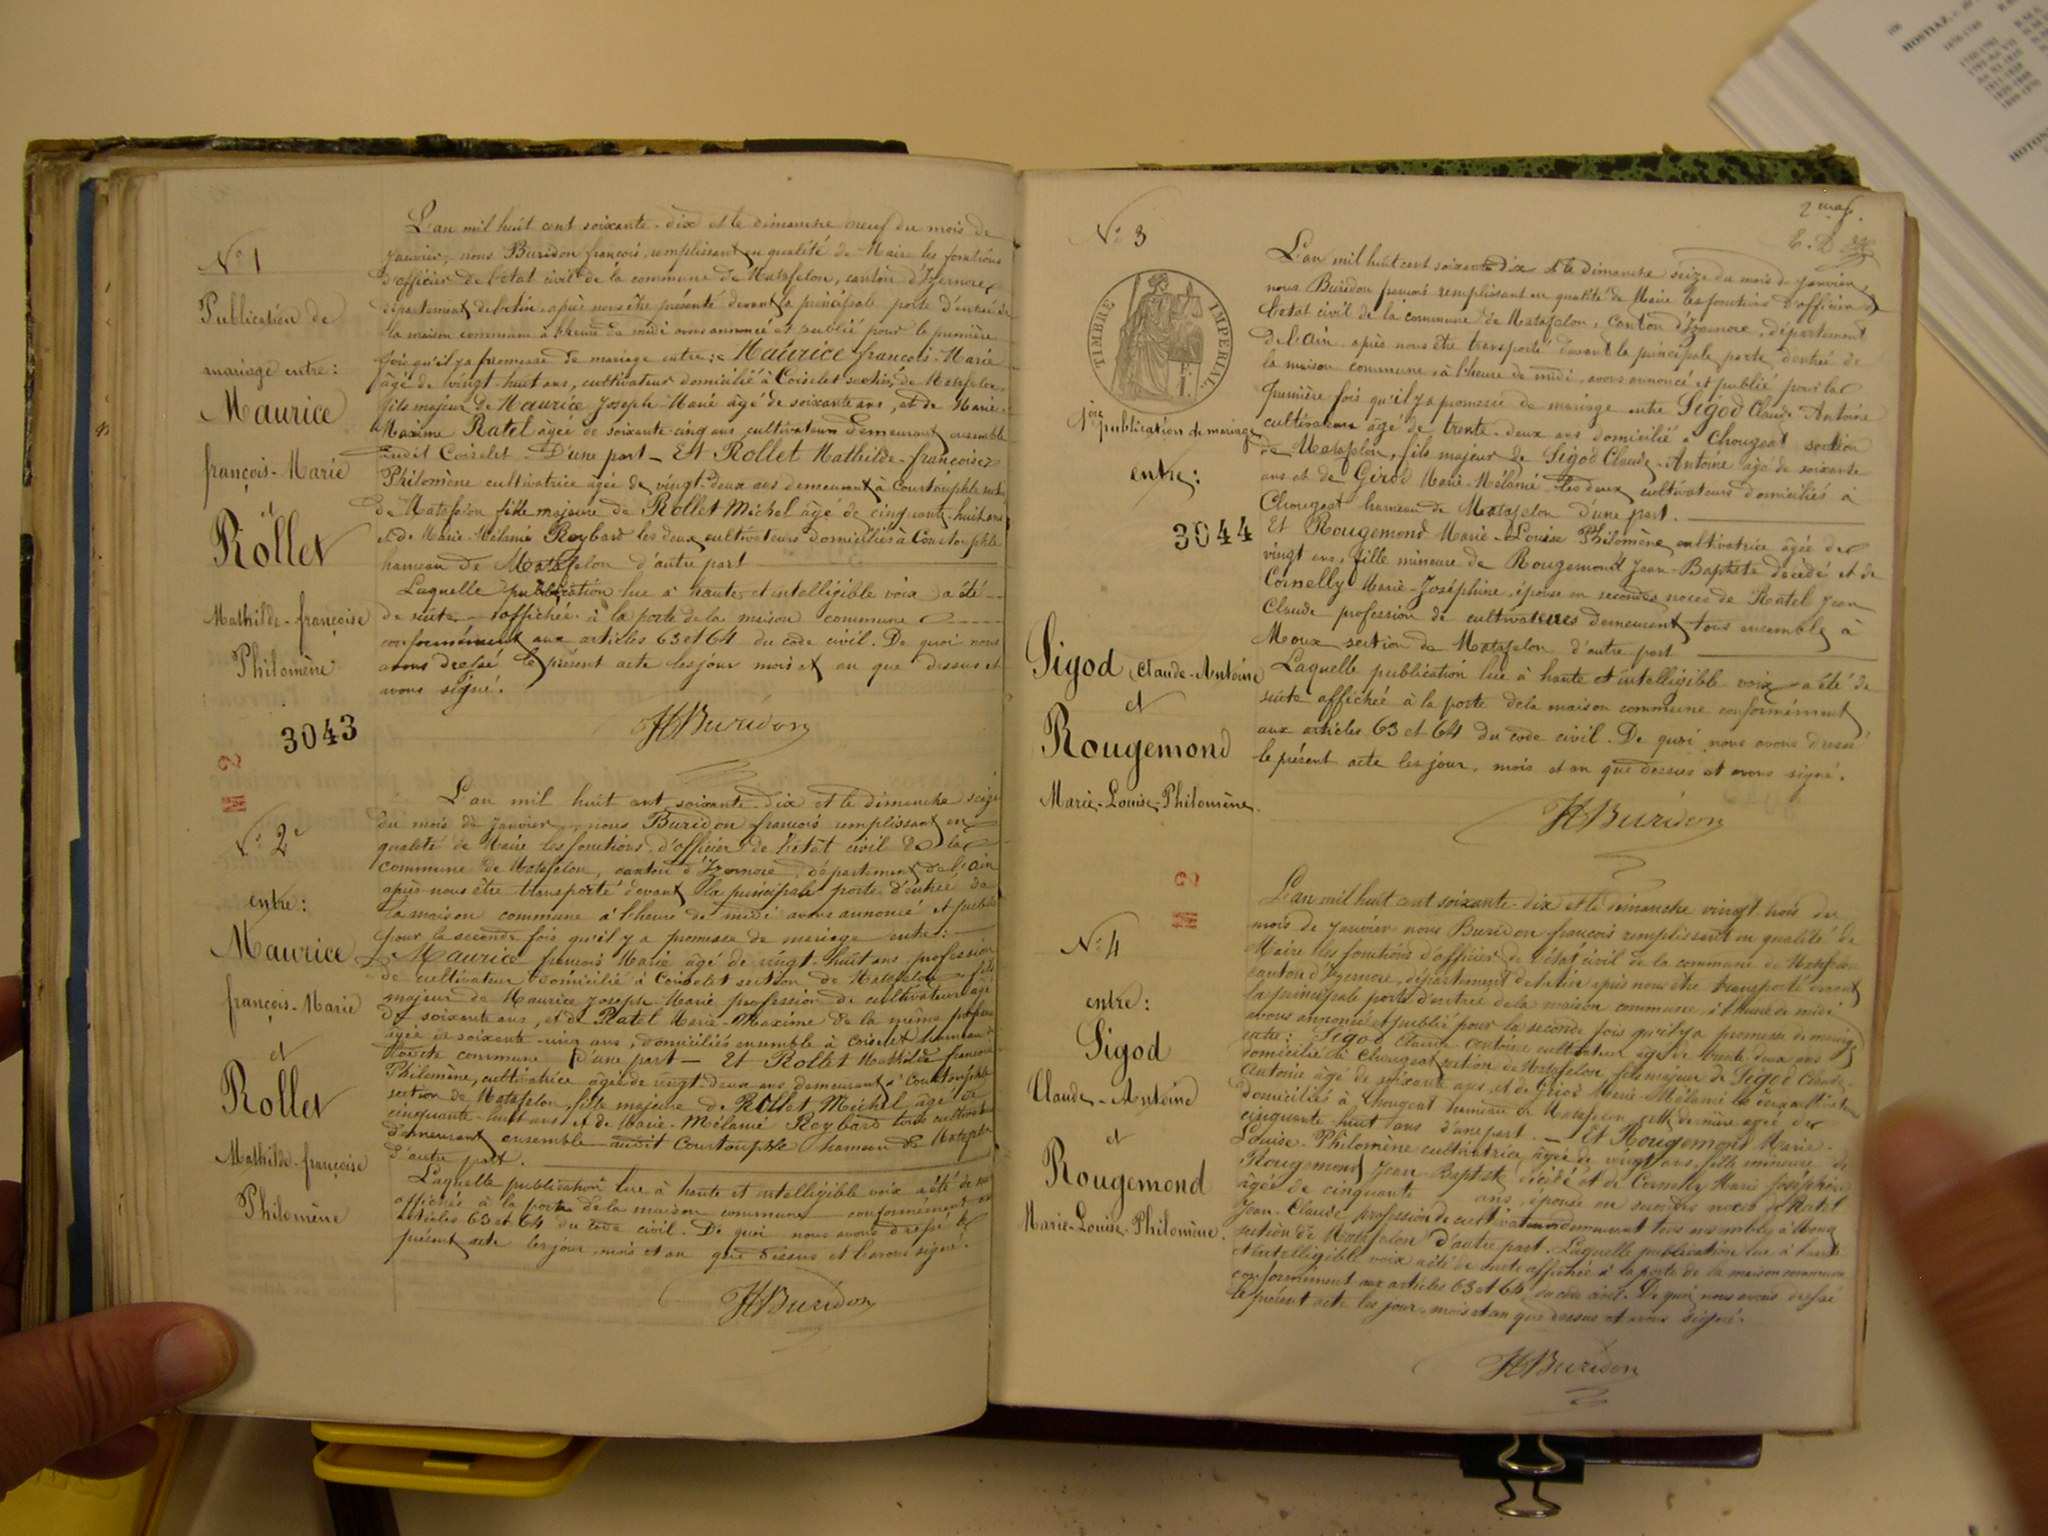 N° 1
Publication de
mariage entre :
Maurice
françois-Marie
et
Rollet
Mathilde-françoise
Philomène
3043
L'an mil huit cent soixante-dix et le dimanche neuf du mois de
janvier, nous Buridon françois, remplissant en qualité de Maire les fonctions
d'officier de l'état civil de la commune de Matafelon, canton d'Izernore
département de l'ain, après nous être présenté devant la principale porte d'entrée de
la maison commune à l'heure de midi avons annoncé et publié pour la première
fois qu'il y a promesse de mariage entre : Maurice françois-Marie
âgé de vingt-huit ans, cultivateur domicilié à Coiselet section de Matafelon
fils majeur de Maurice Joseph-Marie âgé de soixante ans, et de Marie-
Maxime Ratel âgée de soixante-cinq ans, cultivateurs demeurant ensemble
audit Coiselet D'une part - Et Rollet Mathilde-françoise
Philomène cultivatrice âgée de vingt-deux ans demeurant à Courtouphle section
de Matafelon fille majeure de Rollet Michel âgé de cinquante-huit ans
et de Marie-Mélanie Reybard les deux cultivateurs domiciliés à Courtouphle
hameau de Matafelon d'autre part
Laquelle publication lue à haute et intelligible voix a été
de suite affichée à la porte de la maison commune
conformément aux articles 63 et 64 du code civil. De quoi nous
avons dressé le présent acte les jour mois et an que dessus et
avons signé.
Buridon
N° 2e
entre :
Maurice
françois-Marie
et
Rollet
Mathilde-françoise
Philomène
L'an mil huit cent soixante-dix et le dimanche seize
du mois de janvier, nous Buridon françois remplissant en
qualité de Maire les fonctions d'officier de l'état civil de la
commune de Matafelon, canton d'Izernore, département de l'ain
après nous être transporté devant la principale porte d'entrée de
la maison commune à l'heure de midi avons annoncé et publié
pour la seconde fois qu'il y a promesse de mariage entre :
Maurice françois Marie âgé de vingt-huit ans profession
de cultivateur domicilié à Coiselet section de Matafelon fils
majeur de Maurice Joseph-Marie profession de cultivateur âgé
de soixante ans, et de Ratel Marie-Maxime de la même profession
âgée de soixante-cinq ans, domiciliés ensemble à Coiselet hameau de
commune d'une part - Et Rollet Mathilde françoise
Philomène, cultivatrice âgée de vingt-deux ans demeurant à Courtouphle
section de Matafelon, fille majeure de Rollet Michel âgé de
cinquante-huit ans et de Marie-Mélanie Reybard tous cultivateurs
demeurant ensemble audit Courtouphle hameau de Matafelon
d'autre part.
Laquelle publication lue à haute et intelligible voix a été de suite
affichée à la porte de la maison commune conformément aux
articles 63 et 64 du code civil. De quoi nous avons dressé le
présent acte les jour, mois et an que dessus et avons signé.
Buridon
N° 3
TIMBRE IMPERIAL
1ère publication de mariage
entre :
3044
Sigod Claude-Antoine
et
Rougemond
Marie-Louise-Philomène.
L'an mil huit cent soixante dix et le dimanche seize du mois de janvier,
nous Buridon françois remplissant en qualité de Maire les fonctions d'officier de
l'état civil de la commune de Matafelon, Canton d'Izernore, département
de l'ain après nous être transporté devant la principale porte d'entrée de
la maison commune, à l'heure de midi, avons annoncé et publié pour la
première fois qu'il y a promesse de mariage entre Sigod Claude Antoine
cultivateur âgé de trente-deux ans domicilié à Chougeat section
de Matafelon, fils majeur de Sigod Claude-Antoine âgé de soixante
ans et de Girod Marie-Mélanie les deux cultivateurs domiciliés à
Chougeat hameau de Matafelon d'une part.
Et Rougemond Marie-Louise Philomène cultivatrice âgée de
vingt ans, fille mineure de Rougemond Jean-Baptiste décédé et de
Cornelly Marie-Joséphine, épouse en secondes noces de Ratel Jean
Claude profession de cultivateurs demeurant tous ensemble à
Moux section de Matafelon d'autre part
Laquelle publication lue à haute et intelligible voix a été de
suite affichée à la porte de la maison commune conformément
aux articles 63 et 64 du code civil. De quoi nous avons dressé
le présent acte les jour, mois et an que dessus et avons signé.
Buridon
N° 4
entre :
Sigod
Claude-Antoine
et
Rougemond
Marie-Louise-Philomène.
L'an mil huit cent soixante-dix et le dimanche vingt trois du
mois de janvier nous Buridon françois remplissant en qualité de
Maire les fonctions d'officier de l'état civil de la commune de Matafelon
canton d'Izernore, département de l'ain après nous être transporté devant
la principale porte d'entrée de la maison commune, à l'heure de midi
avons annoncé et publié pour la seconde fois qu'il y a promesse de mariage
entre : Sigod Claude Antoine cultivateur âgé de trente deux ans
domicilié à Chougeat section de Matafelon fils majeur de Sigod Claude-
Antoine âgé de soixante ans et de Girod Marie-Mélanie les deux cultivateurs
domiciliés à Chougeat hameau de Matafelon cette dernière âgée de
cinquante huit ans d'une part. - Et Rougemond Marie-
Louise-Philomène cultivatrice âgée de vingt ans, fille mineure de
Rougemond Jean-Baptiste décédé et de Cornelly Marie Joséphine
âgée de cinquante ans, épouse en secondes noces de Ratel
Jean-Claude profession de cultivateurs demeurant tous ensemble à Moux
section de Matafelon d'autre part. Laquelle publication lue à haute
et intelligible voix a été de suite affichée à la porte de la maison commune
conformément aux articles 63 et 64 du code civil. De quoi nous avons dressé
le présent acte les jour, mois et an que dessus et avons signé.
Buridon